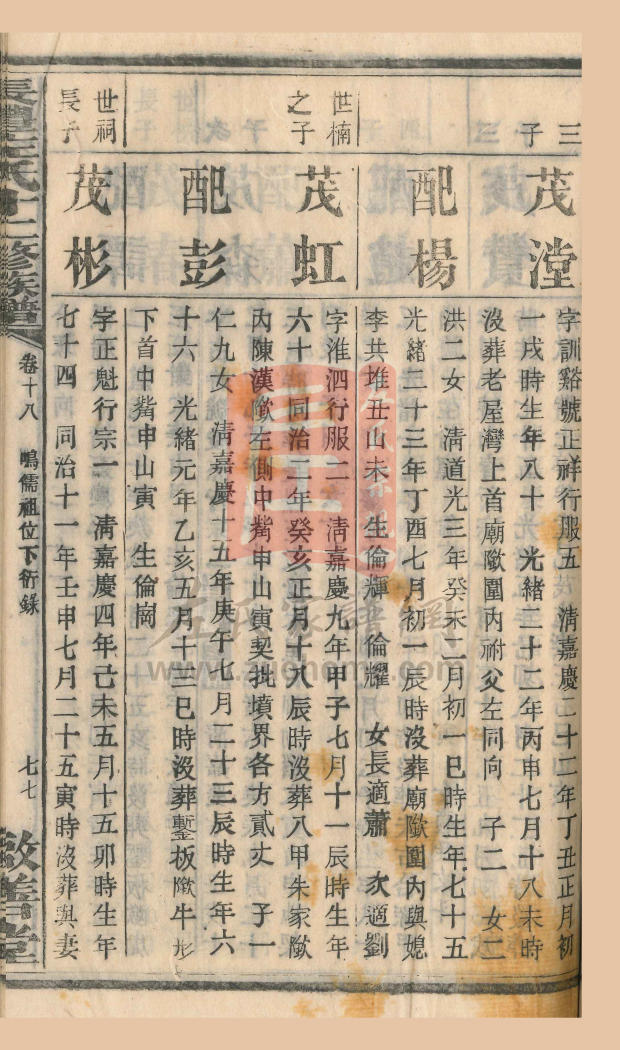 三子
茂瀅
字訓谿號正祥行服五　淸嘉慶二十二年丁丑正月初
一戌時生年八十　光緒二十二年丙申七月十八未時
沒葬老屋灣上首廟歘圍內祔父左同向　子二　女二
配楊
洪二女　淸道光三年癸未二月初一巳時生年七十五
光緒二十三年丁酉七月初一辰時沒葬廟歘圍內與媳
李共堆丑山未　生倫輝　倫耀　女長適蕭　次適劉
世楠之子
茂虹
字淮泗行服二　淸嘉慶九年甲子七月十一辰時生年
六十　同治二年癸亥正月十八辰時沒葬八甲朱家歘
內陳漢歘左側中觜申山寅契批墳界各方貳丈　子一
配彭
仁九女　淸嘉慶十五年庚午七月二十三辰時生年六
十六　光緒元年乙亥五月十三巳時沒葬鏨板歘牛形
下首中觜申山寅　生倫崗
世祠長子
茂彬
字正魁行宗一　淸嘉慶四年己未五月十五卯時生年
七十四　同治十一年壬申七月二十五寅時沒葬與妻
長豐左氏十二修族譜　卷十八　鳴儒祖位下衍錄　七七　敬善堂
www.zuohome.com